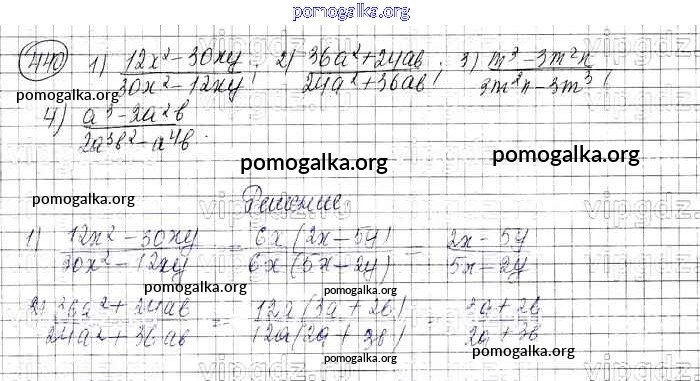 pomogalka.org
440 1) (12x² - 30xy)/(30x² - 12xy); 2) (36a² + 24ab)/(24a² + 36ab); 3) (m³ - 3m²n)/(3m²n - 3m³);
pomogalka.org
4) (a³ - 2a²b)/(2a³b² - a⁴b).
pomogalka.org pomogalka.org
pomogalka.org
Решение
1) (12x² - 30xy)/(30x² - 12xy) = 6x(2x - 5y)/6x(5x - 2y) = (2x - 5y)/(5x - 2y)
pomogalka.org pomogalka.org
2) (36a² + 24ab)/(24a² + 36ab) = 12a(3a + 2b)/12a(2a + 3b) = (3a + 2b)/(2a + 3b)
pomogalka.org pomogalka.org pomogalka.org